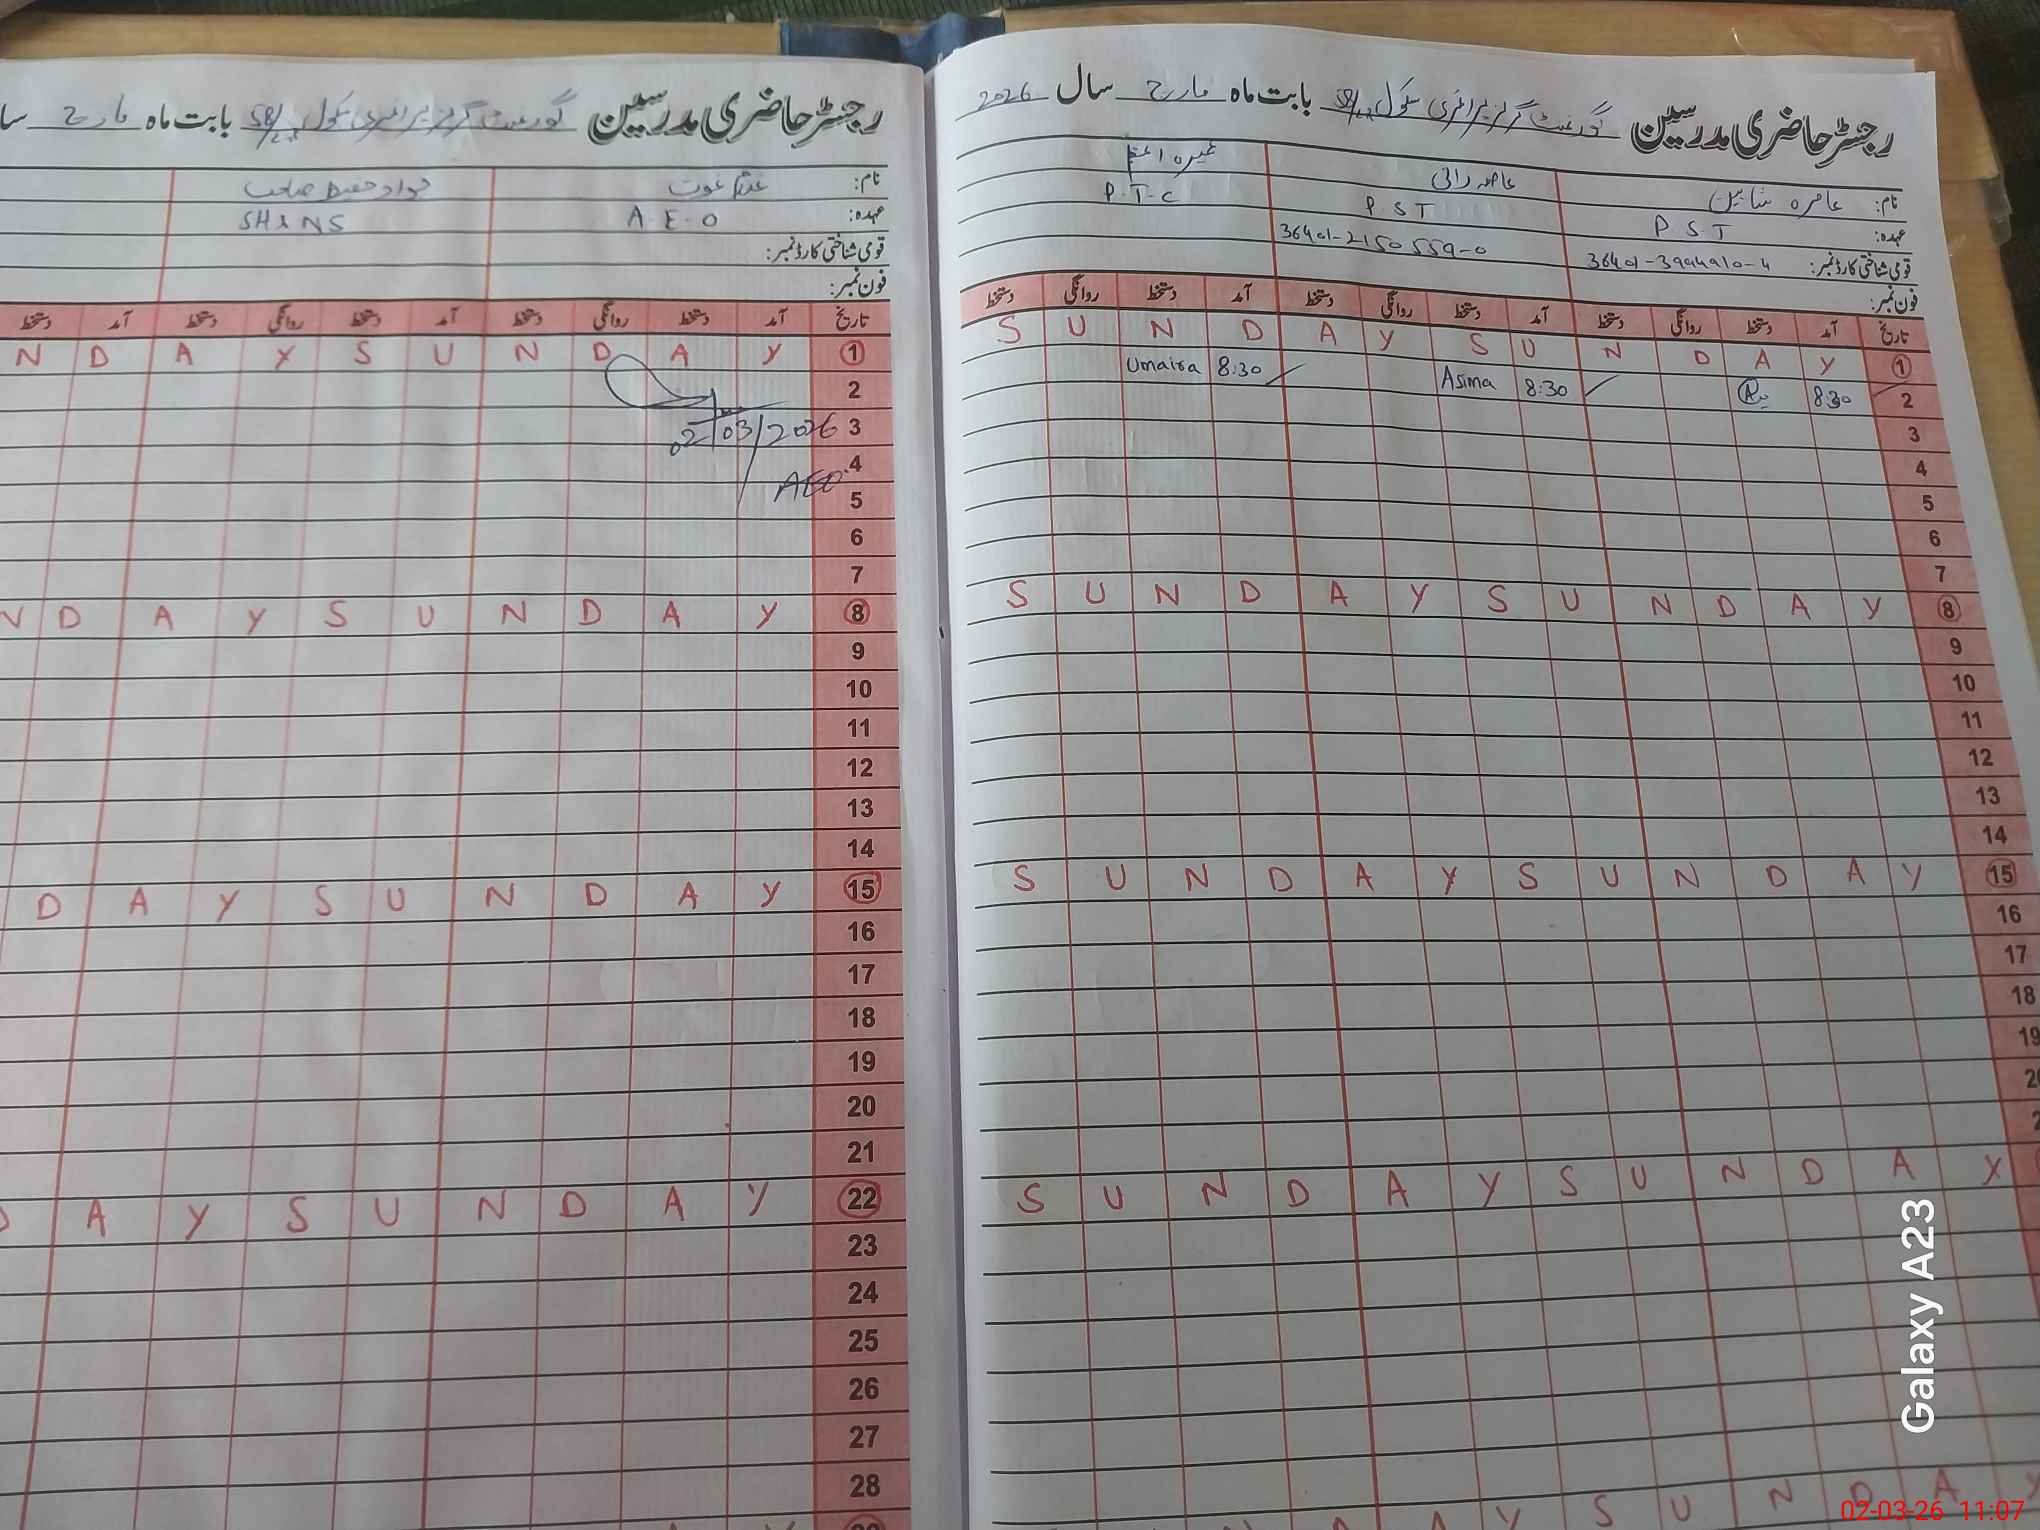 رجسٹر حاضری مدرسین گورنمنٹ گرلز پرائمری سکول 58/ بابت ماہ مارچ سال 2026
نام: عاصرہ شاہین عاصمہ رانی عمیرہ
عہدہ: P.S.T P.S.T P.T.C
قومی شناختی کارڈ نمبر:
فون نمبر:
تاریخ آمد دستخط روانگی دستخط آمد دستخط روانگی دستخط آمد دستخط روانگی دستخط
S U N D A Y S U N D A Y 1
Umaira 8:30 Asima 8:30 8:30 2
3
4
5
6
7
S U N D A Y S U N D A Y 8
9
10
11
12
13
14
S U N D A Y S U N D A Y 15
16
17
18
19
S U N D A Y S U N D A Y
S U N D A Y
رجسٹر حاضری مدرسین گورنمنٹ گرلز پرائمری سکول 58/ بابت ماہ مارچ
نام: غوث صاحب
عہدہ: A.E.O
قومی شناختی کارڈ نمبر:
فون نمبر:
تاریخ آمد دستخط روانگی دستخط آمد دستخط روانگی دستخط آمد دستخط
N D A Y S U N D A Y 1
2
02/03/2026 3
4
AEO 5
6
7
N D A Y S U N D A Y 8
9
10
11
12
13
14
D A Y S U N D A Y 15
16
17
18
19
20
21
A Y S U N D A Y 22
23
24
25
26
27
28
Galaxy A23
02-03-26 11:07